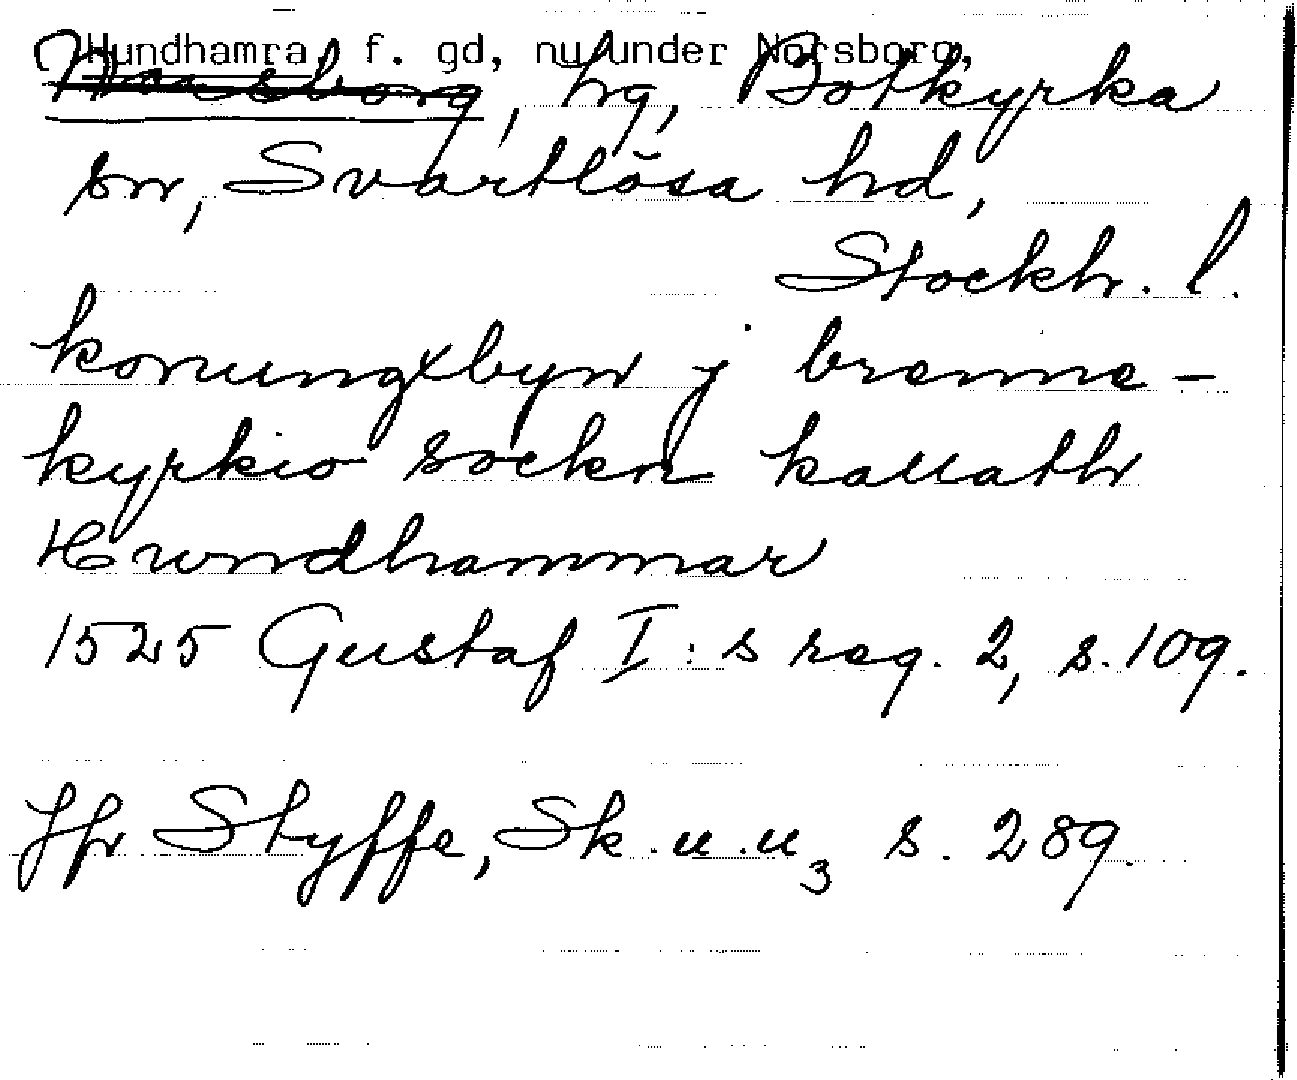 Hundhamra, f. gd, nu under Norsborg,
Norsborg, hg, Botkyrka
sn, Svartlösa hd,
Stockh. l.
konungxbyn j brenne-
kyrkio sockn kallath
Hwndhammar
1525 Gustaf I:s reg. 2, s. 109.
Jfr Styffe, Sk.u.u3 s. 289.